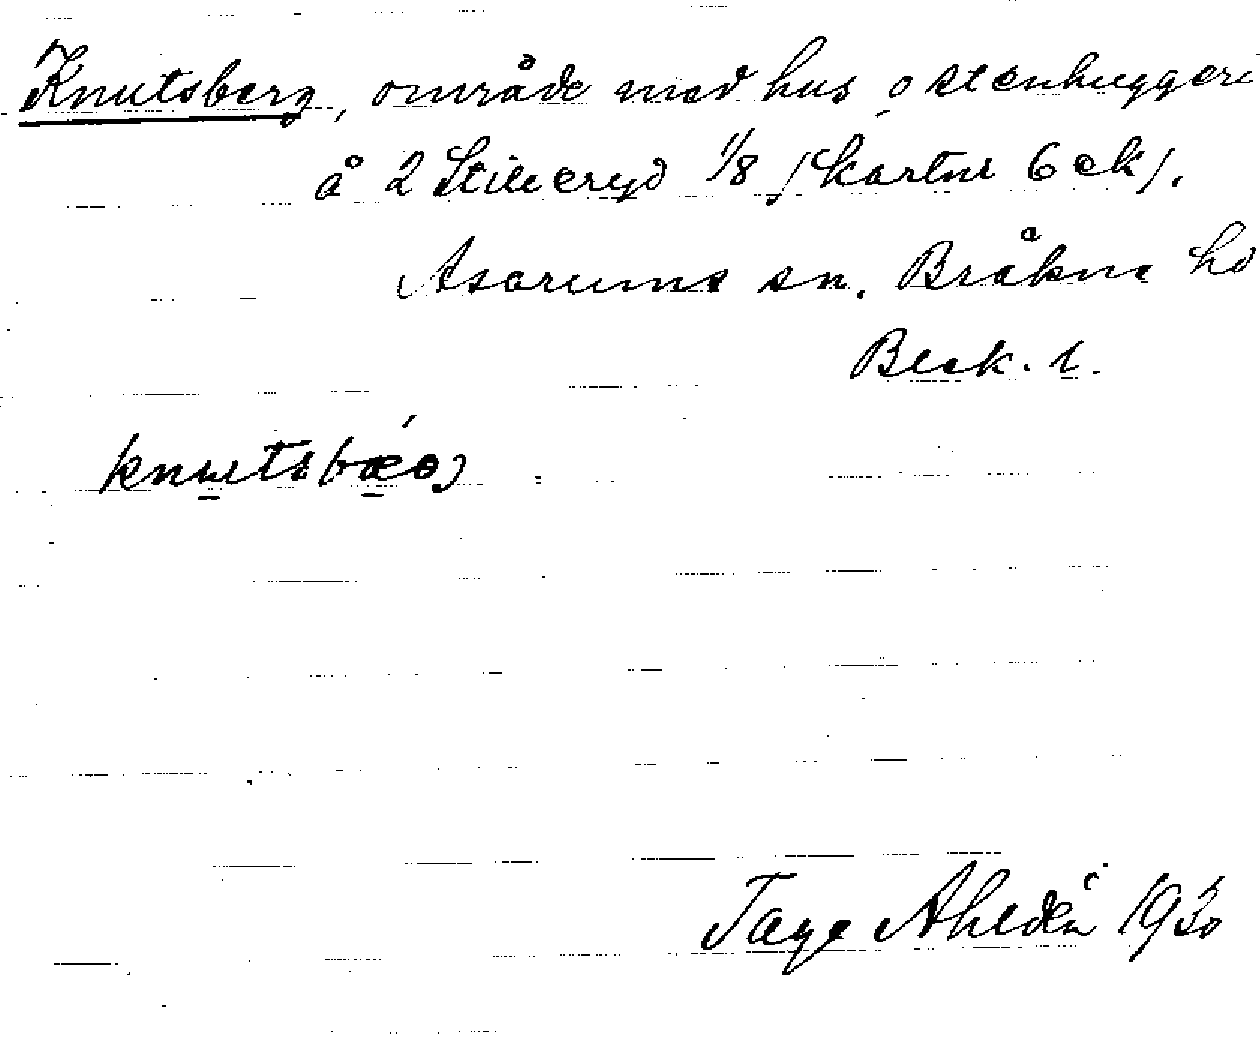 Knutsberg, område med hus o stenhuggeri
å 2 Stilleryd 1/8 (kartbl 6 ek).
Asarums sn. Bräkne hd
Blek. l.
Tage Ahldén 1930